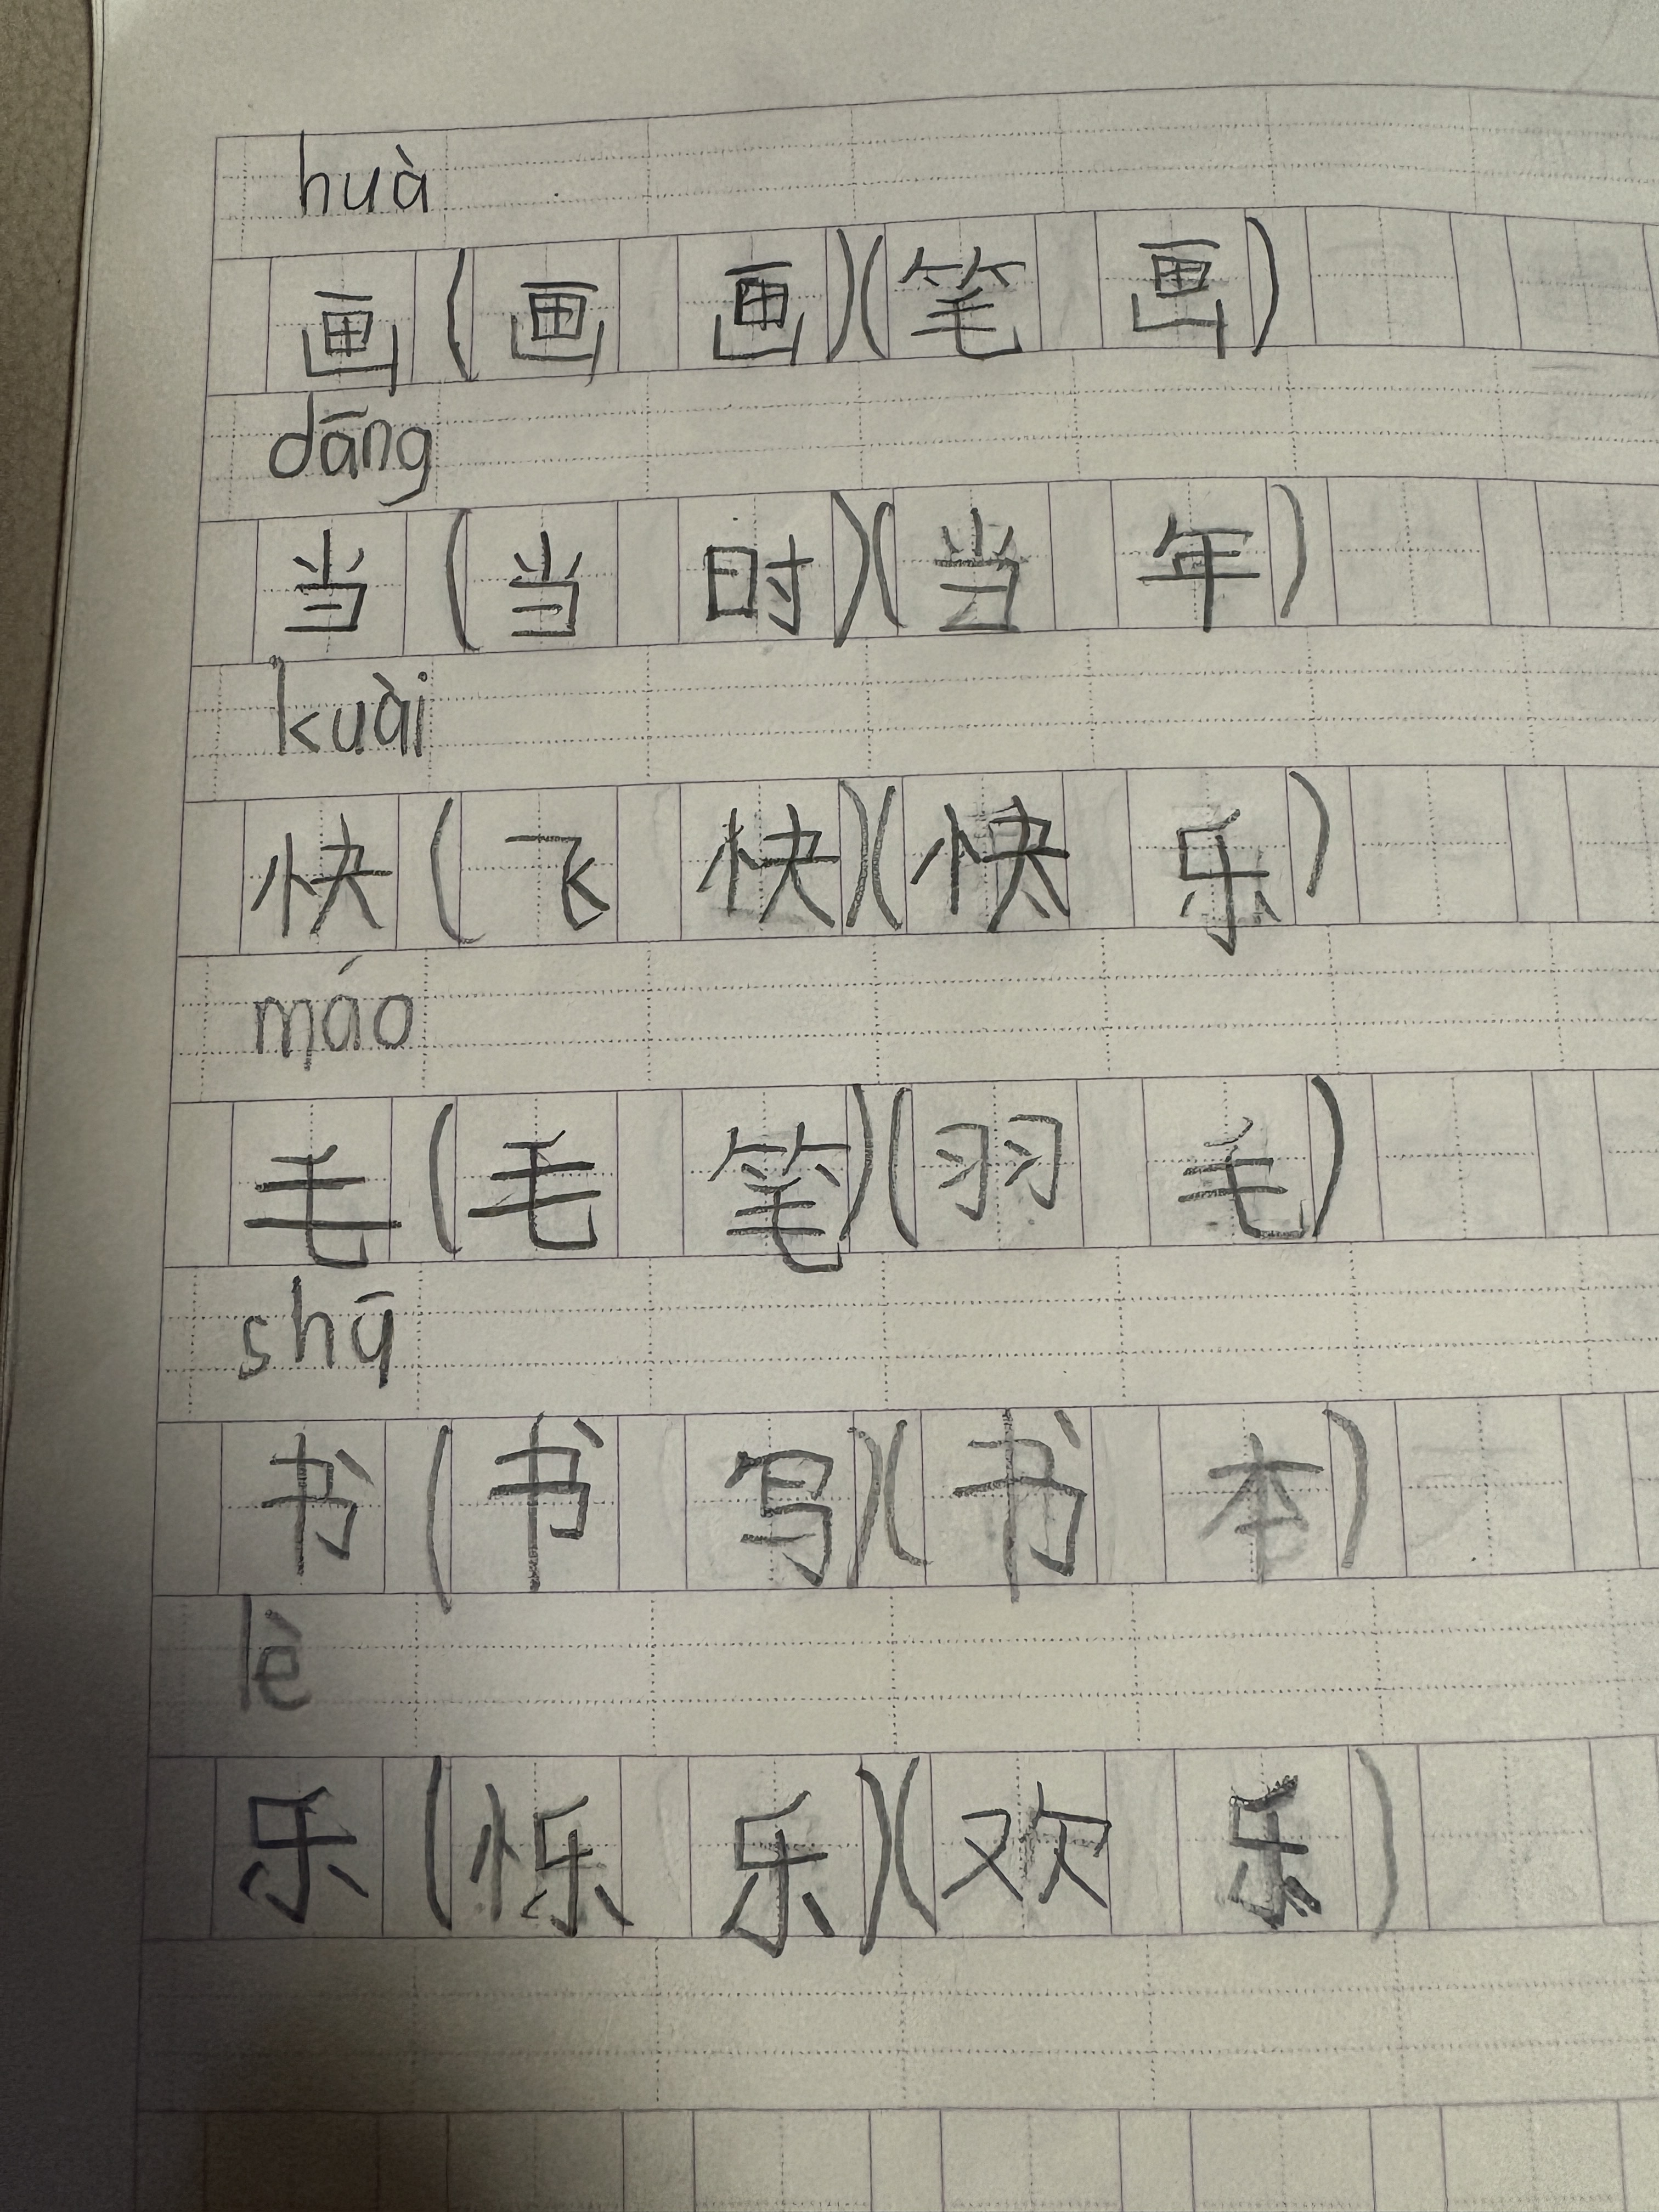 huà
画(画画)(笔画)
dāng
当(当时)(当年)
kuài
快(飞快)(快乐)
máo
毛(毛笔)(羽毛)
shū
书(书写)(书本)
lè
乐(怿乐)(欢乐)